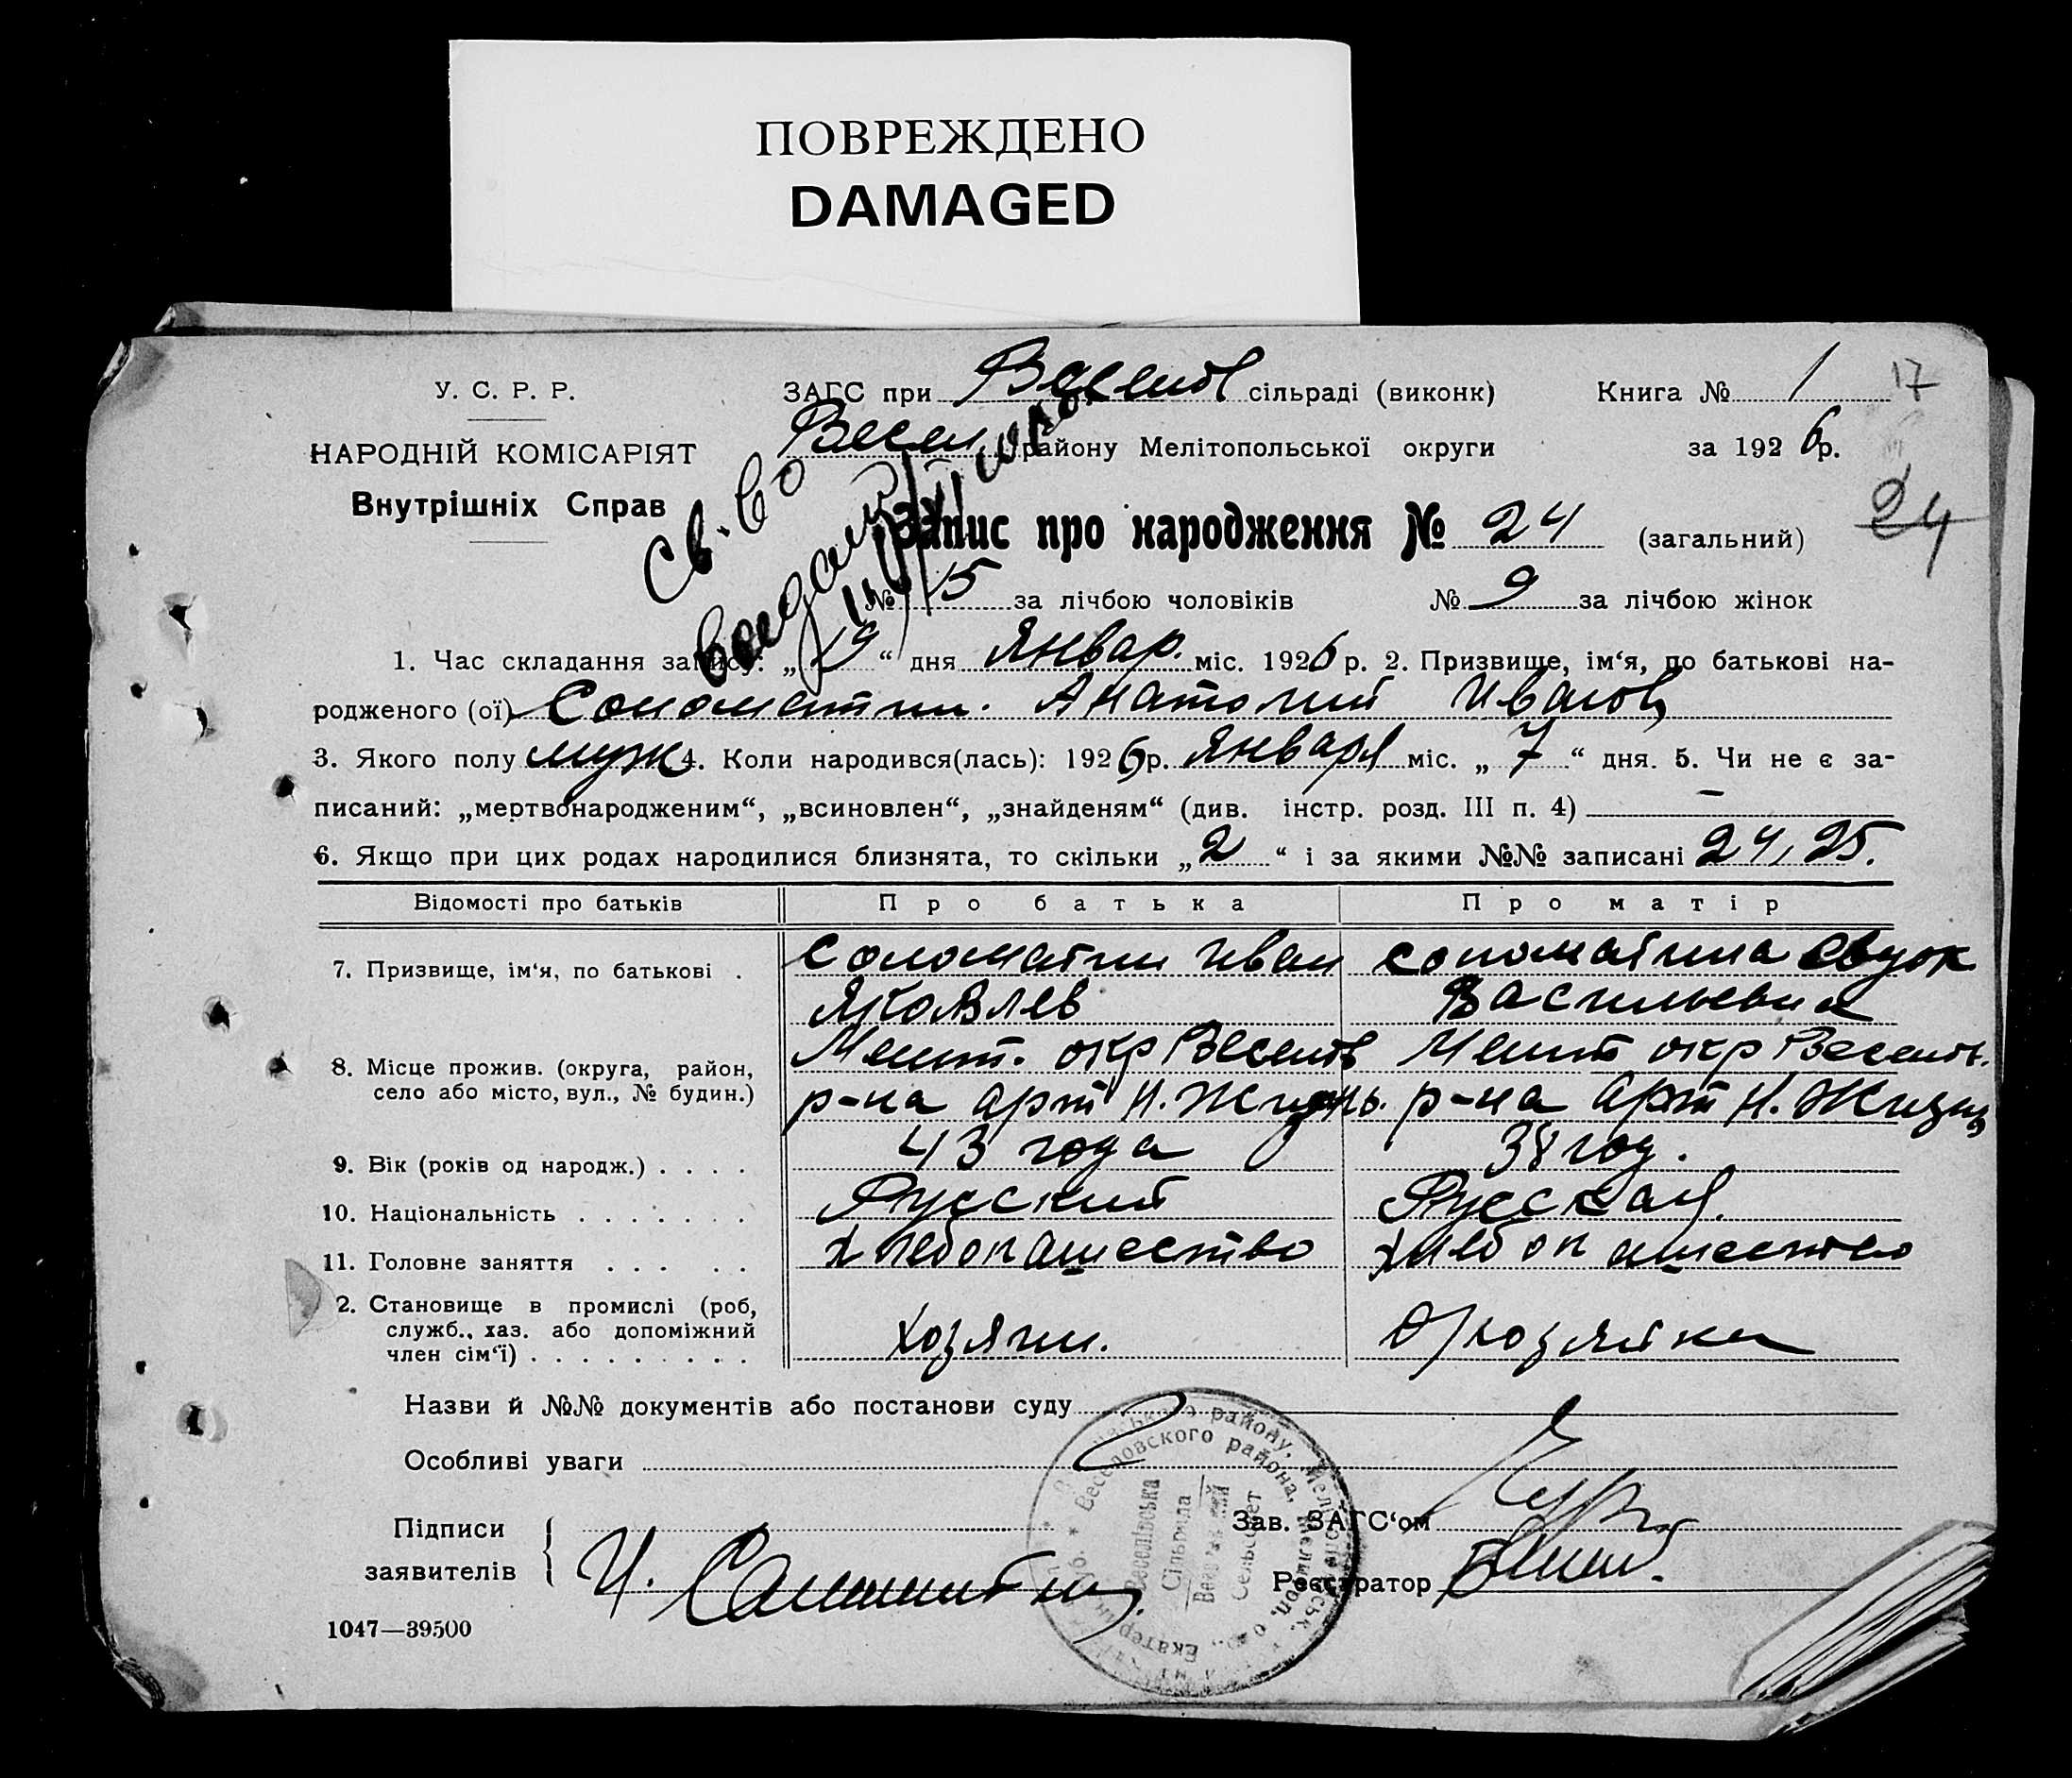 ПОВРЕЖДЕНО
DAMAGED
У. С. Р. Р.
ЗАГС при Веселов сільраді (виконк)
Книга № 1
17
НАРОДНІЙ КОМІСАРІЯТ
Весел району Мелітопольської округи
за 1926р.
Внутрішніх Справ
Св. во
Запис про народження № 24 (загальний)
24
№ 15 за лічбою чоловіків № 9 за лічбою жінок
1. Час складання запису: „19“ дня Январ. міс. 1926 р. 2. Призвище, ім‘я, по батькові на-
родженого (ої) Соломатин. Анатолий Иванов
3. Якого полу муж 4. Коли народився(лась): 1926р. Января міс. „7“ дня. 5. Чи не є за-
писаний: „мертвонародженим“, „всиновлен“, „знайденям“ (див. інстр. розд. III п. 4) —
6. Якщо при цих родах народилися близнята, то скільки „2“ і за якими №№ записані 24, 25.
Відомості про батьків
Про батька
Про матір
7. Призвище, ім‘я, по батькові .
Соломатин Иван
Яковлев
Соломатина Евдок
Васильевна
8. Місце прожив. (округа, район,
село або місто, вул., № будин.)
Мелит. окр Веселов
р-на арт Н. Жизнь.
Мелит окр Веселов.
р-на Арт Н. Жизнь
9. Вік (років од народж.) . . . .
43 года
38 год.
10. Національність . . . . . . .
Русский
Русская.
11. Головне заняття . . . . .
хлебопашество
хлебопашество
2. Становище в промислі (роб,
служб., хаз. або допоміжний
член сім‘ї) . . . . . . . . .
хозяин.
Д/хозяйка
Назви й №№ документів або постанови суду
Особливі уваги
Підписи
заявителів
И. Саламатин
Зав. ЗАГС‘ом
Реєстратор
Веселовского района, Мелитоп. о
Екатерин
Веселівська
Сільрада
Сельсовет
1047—39500